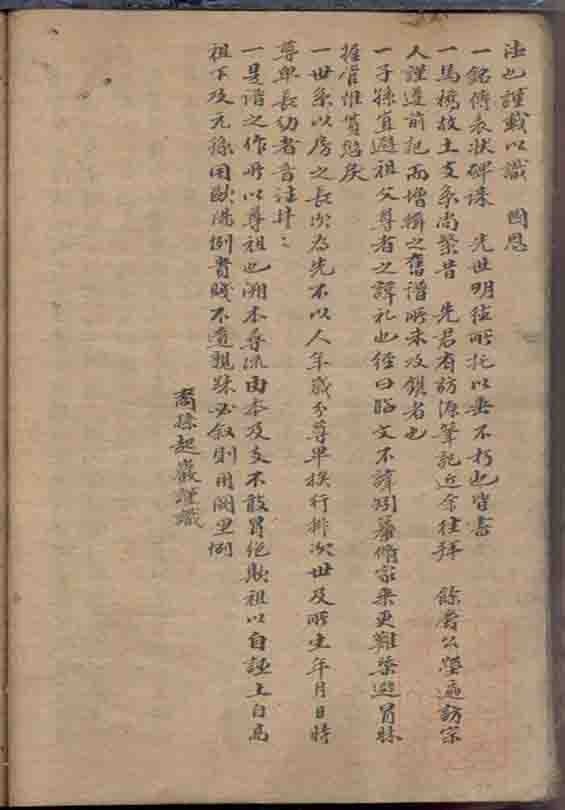 法也謹載以識　國恩
一銘傳表狀碑誄　先世明德所托以垂不朽也皆書
一馬橋故土支系尚繁昔　先君有訪源筆記近余往拜　餘齋公塋遍訪宗
人謹遵前記而增輯之舊譜所未及鎖者也
一子孫宜避祖父尊者之諱礼也經曰臨文不諱矧纂脩家乘更難槩避冒昧
擢管惟貰愆戾
一世系以房之長次為先不以人年歲分尊卑挨行排次世及所生年月日時
尊卑長幼者音注井：
一是譜之作所以尊祖也溯本尋流由本及支不敢冒他歟祖以自誣上自高
祖下及元孫用歐陽例貴賤不遺親疎必叙則用闕里例
裔孫起巖謹識